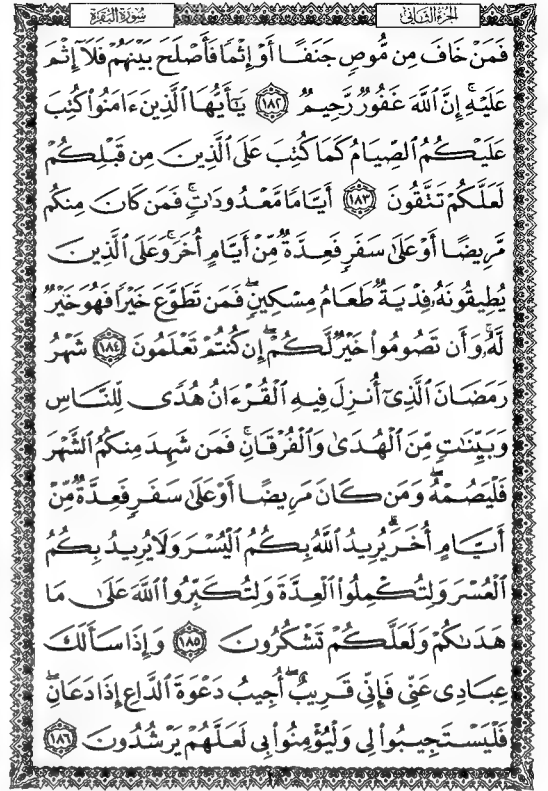 الجزء الثاني
سورة البقرة
فَمَنْ خَافَ مِن مُّوصٍ جَنَفًا أَوْ إِثْمًا فَأَصْلَحَ بَيْنَهُمْ فَلَآ إِثْمَ
عَلَيْهِ ۚ إِنَّ ٱللَّهَ غَفُورٌ رَّحِيمٌ ١٨٢ يَـٰٓأَيُّهَا ٱلَّذِينَ ءَامَنُوا۟ كُتِبَ
عَلَيْكُمُ ٱلصِّيَامُ كَمَا كُتِبَ عَلَى ٱلَّذِينَ مِن قَبْلِكُمْ
لَعَلَّكُمْ تَتَّقُونَ ١٨٣ أَيَّامًا مَّعْدُودَٰتٍ ۚ فَمَن كَانَ مِنكُم
مَّرِيضًا أَوْ عَلَىٰ سَفَرٍ فَعِدَّةٌ مِّنْ أَيَّامٍ أُخَرَ ۚ وَعَلَى ٱلَّذِينَ
يُطِيقُونَهُۥ فِدْيَةٌ طَعَامُ مِسْكِينٍ ۖ فَمَن تَطَوَّعَ خَيْرًا فَهُوَ خَيْرٌ
لَّهُۥ ۚ وَأَن تَصُومُوا۟ خَيْرٌ لَّكُمْ ۖ إِن كُنتُمْ تَعْلَمُونَ ١٨٤ شَهْرُ
رَمَضَانَ ٱلَّذِىٓ أُنزِلَ فِيهِ ٱلْقُرْءَانُ هُدًى لِّلنَّاسِ
وَبَيِّنَـٰتٍ مِّنَ ٱلْهُدَىٰ وَٱلْفُرْقَانِ ۚ فَمَن شَهِدَ مِنكُمُ ٱلشَّهْرَ
فَلْيَصُمْهُ ۖ وَمَن كَانَ مَرِيضًا أَوْ عَلَىٰ سَفَرٍ فَعِدَّةٌ مِّنْ
أَيَّامٍ أُخَرَ ۗ يُرِيدُ ٱللَّهُ بِكُمُ ٱلْيُسْرَ وَلَا يُرِيدُ بِكُمُ
ٱلْعُسْرَ وَلِتُكْمِلُوا۟ ٱلْعِدَّةَ وَلِتُكَبِّرُوا۟ ٱللَّهَ عَلَىٰ مَا
هَدَىٰكُمْ وَلَعَلَّكُمْ تَشْكُرُونَ ١٨٥ وَإِذَا سَأَلَكَ
عِبَادِى عَنِّى فَإِنِّى قَرِيبٌ ۖ أُجِيبُ دَعْوَةَ ٱلدَّاعِ إِذَا دَعَانِ ۖ
فَلْيَسْتَجِيبُوا۟ لِى وَلْيُؤْمِنُوا۟ بِى لَعَلَّهُمْ يَرْشُدُونَ ١٨٦